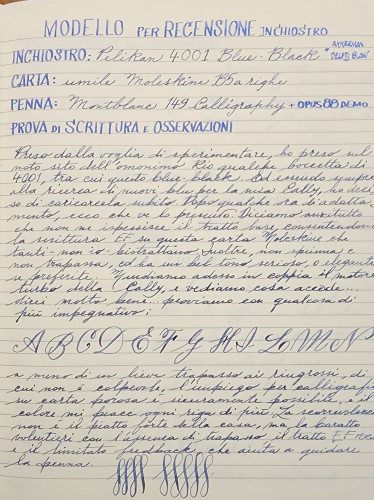 MODELLO PER RECENSIONE INCHIOSTRO
INCHIOSTRO: Pelikan 4001 Blue-Black
CARTA: umile Moleskine B5 a righe
PENNA: Montblanc 149 Calligraphy + OPUS 88 DEMO
PROVA DI SCRITTURA E OSSERVAZIONI
Preso dalla voglia di sperimentare, ho preso sul
noto sito dell'omonimo Rio qualche boccetta di
4001, tra cui questo blue-black. Ed essendo sempre
alla ricerca di nuovi blu per la mia Cally, ho deci
so di caricarcela subito. Dopo qualche ora di adatta
mento, ecco che ve lo presento. Diciamo anzitutto
che non me ispessisce il tratto base, consentendomi
la scrittura EF su questa carta Moleskine che
tanti non io bistrattano. Inoltre, non spiuma e
non trapassa, ed ha un bel tono serioso, o elegante
se preferite. Mandiamo adesso in coppia il motore
turbo della Cally, e vediamo cosa accade...
direi molto bene. proviamo con qualcosa di
più impegnativo:
A B C D E F G H I L M N
a meno di un lieve trapasso ai ringrossi, di
cui non è colpevole, l'impiego per calligrafia
su carta porosa è sicuramente possibile, e il
colore mi piace ogni riga di più. La scorrevolezza
non è il piatto forte della casa, ma la baratto
volentieri con l'assenza di trapasso il tratto EF
e il limitato feedback che aiuta a guidare
la penna.